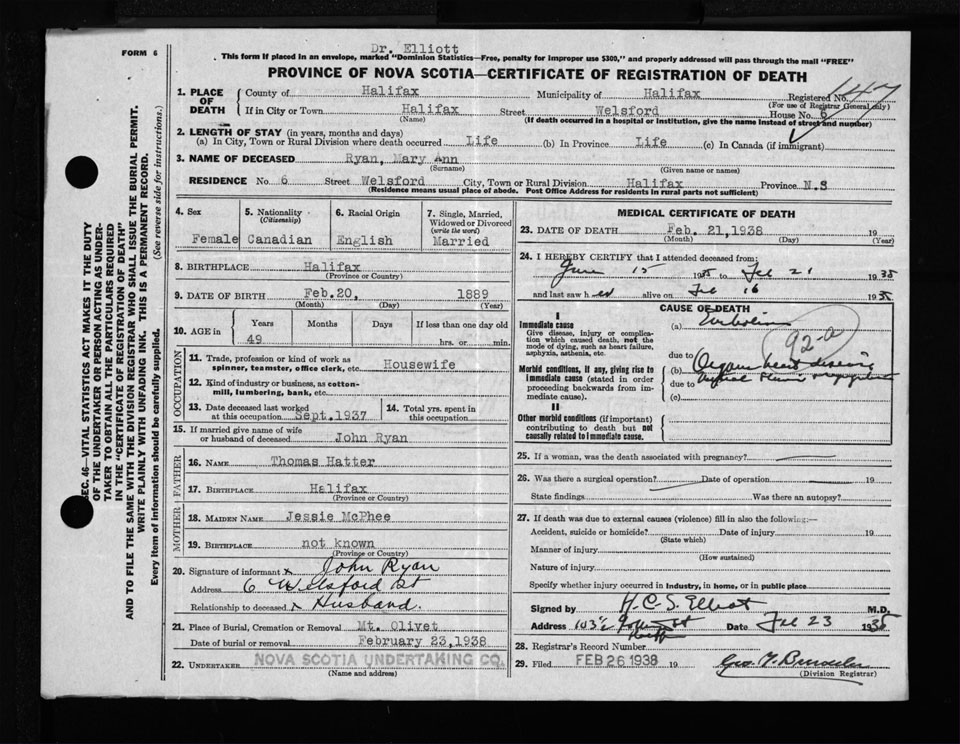 Dr. Elliott
FORM 6
This form if placed in an envelope, marked "Dominion Statistics—Free, penalty for improper use $300," and properly addressed will pass through the mail "FREE"
PROVINCE OF NOVA SCOTIA—CERTIFICATE OF REGISTRATION OF DEATH
1. PLACE OF DEATH
County of Halifax Municipality of Halifax Registered No. 147
(For use of Registrar General only)
If in City or Town Halifax Street Welsford House No. 6
(Name) (If death occurred in a hospital or institution, give the name instead of street and number)
2. LENGTH OF STAY (in years, months and days)
(a) In City, Town or Rural Division where death occurred Life (b) In Province Life (c) In Canada (if immigrant)
3. NAME OF DECEASED Ryan, Mary Ann
(Surname) (Given name or names)
RESIDENCE No. 6 Street Welsford City, Town or Rural Division Halifax Province N.S
(Residence means usual place of abode. Post Office Address for residents in rural parts not sufficient)
4. Sex
Female
5. Nationality
(Citizenship)
Canadian
6. Racial Origin
English
7. Single, Married,
Widowed or Divorced
(write the word)
Married
8. BIRTHPLACE Halifax
(Province or Country)
9. DATE OF BIRTH Feb.20, 1889
(Month) (Day) (Year)
10. AGE in
Years Months Days If less than one day old
49 hrs. or min.
OCCUPATION
11. Trade, profession or kind of work as
spinner, teamster, office clerk, etc. Housewife
12. Kind of industry or business, as cotton-
mill, lumbering, bank, etc.
13. Date deceased last worked
at this occupation Sept.1937
14. Total yrs. spent in
this occupation
15. If married give name of wife
or husband of deceased John Ryan
FATHER
16. NAME Thomas Hatter
17. BIRTHPLACE Halifax
(Province or Country)
MOTHER
18. MAIDEN NAME Jessie McPhee
19. BIRTHPLACE not known
(Province or Country)
20. Signature of informant x John Ryan
Address 6 Welsford St
Relationship to deceased x Husband.
21. Place of Burial, Cremation or Removal Mt. Olivet
Date of burial or removal February 23,1938
22. UNDERTAKER NOVA SCOTIA UNDERTAKING CO.
(Name and address)
MEDICAL CERTIFICATE OF DEATH
23. DATE OF DEATH Feb. 21,1938 19
(Month) (Day) (Year)
24. I HEREBY CERTIFY that I attended deceased from:
June 15 19 to Feb 21 1938
and last saw her alive on Feb 16 1938
CAUSE OF DEATH
I
Immediate cause
Give disease, injury or complica-
tion which caused death, not the
mode of dying, such as heart failure,
asphyxia, asthenia, etc.
Morbid conditions, if any, giving rise to
immediate cause (stated in order
proceeding backwards from im-
mediate cause).
II
Other morbid conditions (if important)
contributing to death but not
causally related to immediate cause.
(a) Embolism
92-a
due to
(b) Organic heart disease
due to
(c)
25. If a woman, was the death associated with pregnancy?
26. Was there a surgical operation? Date of operation 19
State findings Was there an autopsy?
27. If death was due to external causes (violence) fill in also the following:—
Accident, suicide or homicide? Date of injury 19
(State which)
Manner of injury
(How sustained)
Nature of injury
Specify whether injury occurred in industry, in home, or in public place
Signed by H.C.S. Elliot M.D.
Address Date Feb 23 1938
28. Registrar's Record Number
29. Filed FEB 26 1938 19
(Division Registrar)
SEC. 46—VITAL STATISTICS ACT MAKES IT THE DUTY
OF THE UNDERTAKER OR PERSON ACTING AS UNDER-
TAKER TO OBTAIN ALL THE PARTICULARS REQUIRED
IN THE "CERTIFICATE OF REGISTRATION OF DEATH"
AND TO FILE THE SAME WITH THE DIVISION REGISTRAR WHO SHALL ISSUE THE BURIAL PERMIT.
WRITE PLAINLY WITH UNFADING INK. THIS IS A PERMANENT RECORD.
Every item of information should be carefully supplied. (See reverse side for instructions.)